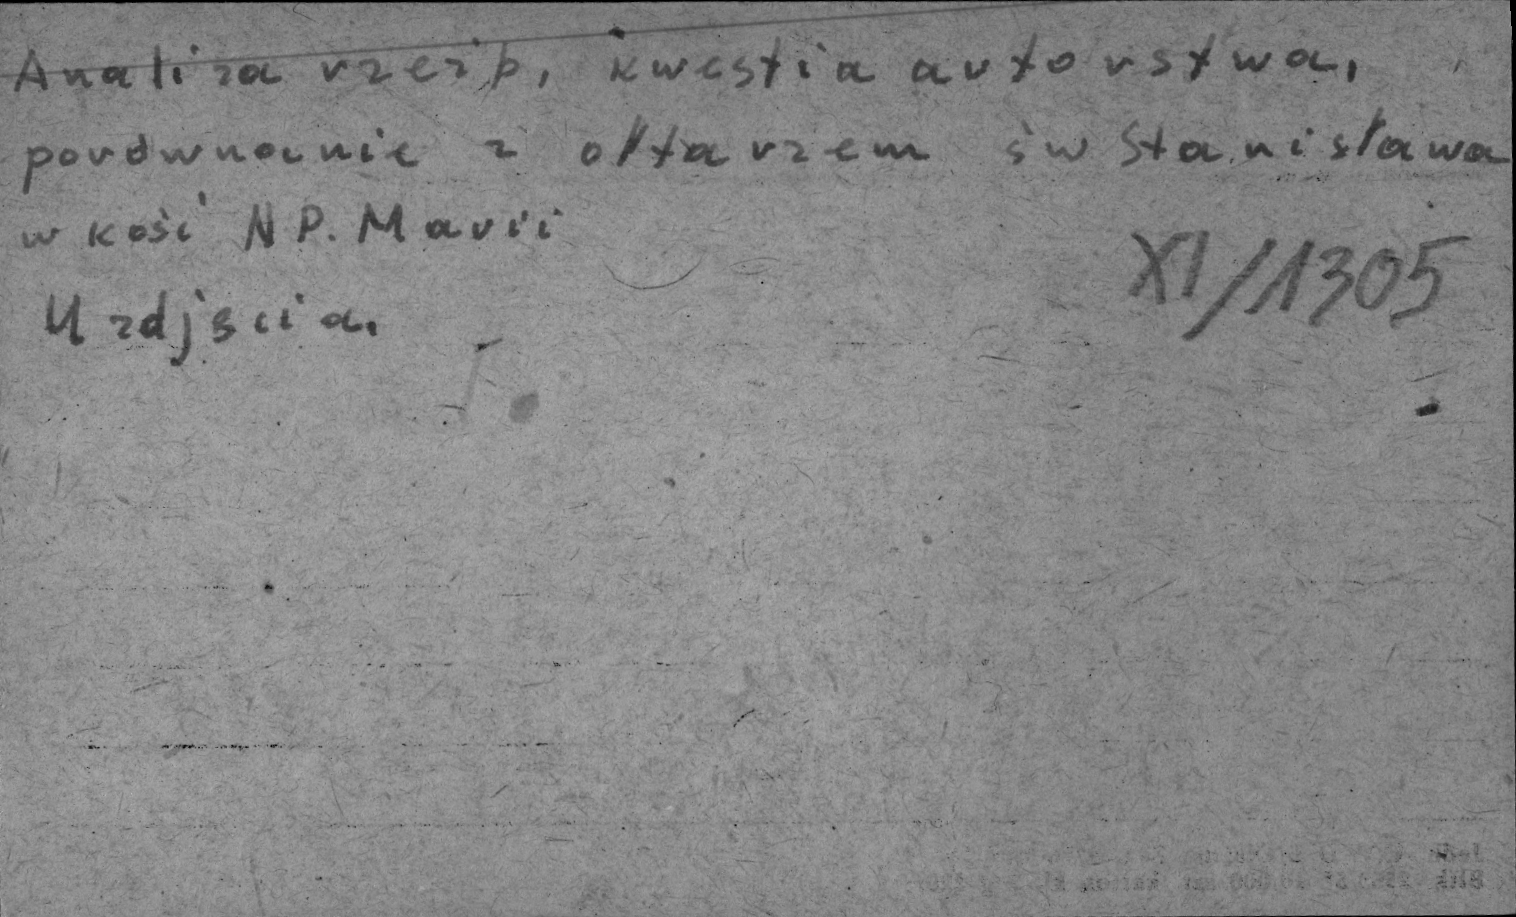 Analiza rzeźb, kwestia autorstwa,
porównanie z ołtarzem św Stanisława
w kośc NP. Marii
XI/1305
4 zdjęcia.